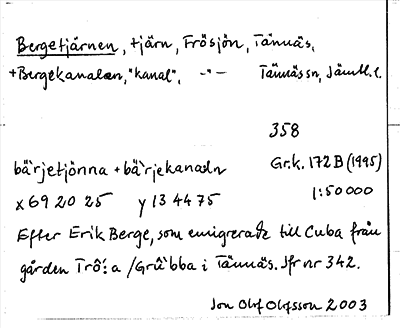 Bergetjärnen, tjärn, Frösjön, Tännäs,
+Bergekanalen, "kanal", -"- Tännäs sn, Jämtl. l.
358
bä`rjetjönna + bä`rjekanaln Gr.k. 172 B (1995)
x 69 20 25 y 13 44 75 1:50 000
Efter Erik Berge, som emigrerade till Cuba från
gården /Grû`bba i Tännäs. Jfr nr 342.
Jon Olof Olofsson 2003